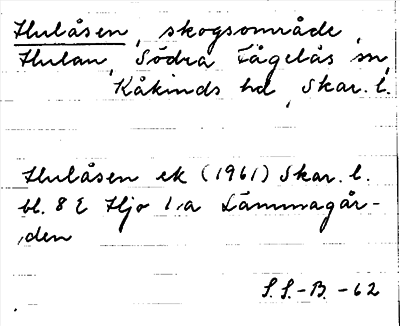 Hulåsen, skogsområde,
Hulan, Södra Fågelås sn,
Kåkinds hd, Skar. l.
Hulåsen ek (1961) Skar. l.
bl. 8 E Hjo 1:a Lämmagår-
den
S.S.-B. -62